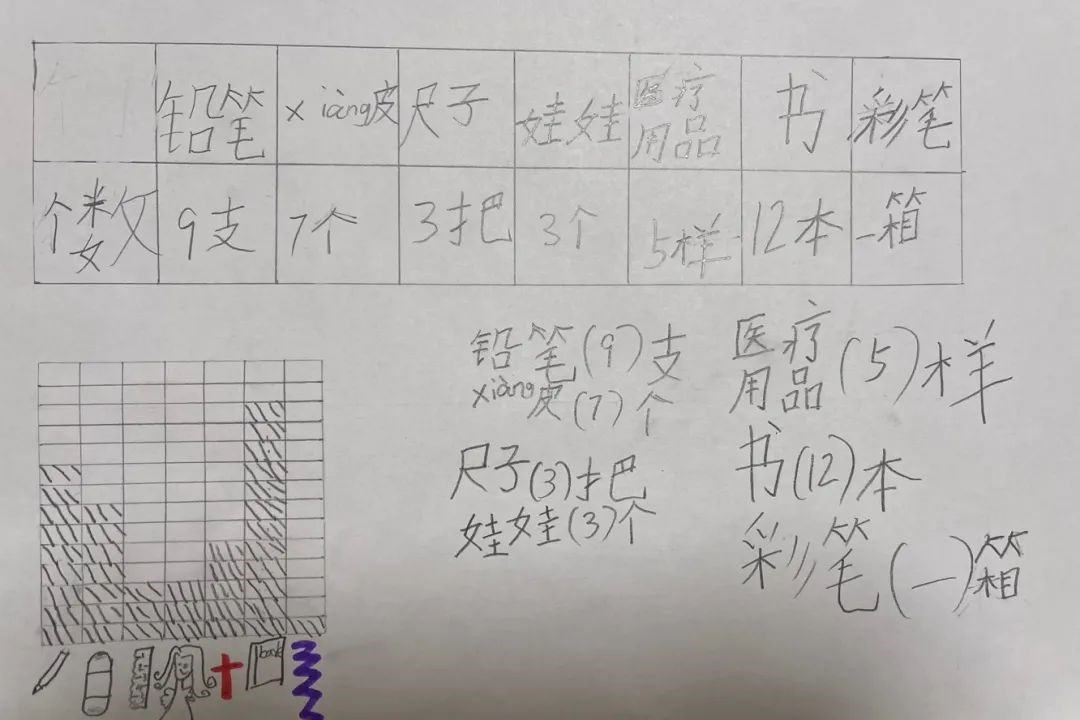 铅笔 xiàng皮 尺子 娃娃 医疗用品 书 彩笔
个数 9支 7个 3把 3个 5样 12本 一箱
铅笔(9)支
xiàng皮(7)个
尺子(3)把
娃娃(3)个
医疗用品(5)样
书(12)本
彩笔(一)箱
book